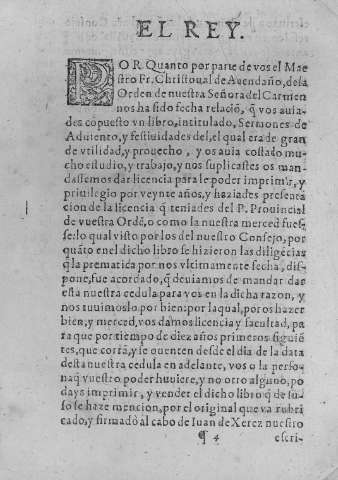 EL REY.
POR Quanto por parte de vos el Mae
stro Fr. Christoual de Auendaño, de la
Orden de nuestra Señora del Carmen
nos ha sido fecha relaciõ, q̃ vos auia
des cõpuesto vn libro, intitulado, Sermones de
Aduiento, y festiuidades del, el qual era de gran
de vtilidad, y prouecho, y os auia costado mu-
cho estudio, y trabajo, y nos suplicastes os man
dassemos dar licencia para le poder imprimir, y
priuilegio por veynte años, y haziades presenta
cion de la licencia q̃ teniades del P. Prouincial
de vuestra Ordẽ, o como la nuestra merced fues-
se: lo qual visto por los del nuestro Consejo, por
quãto en el dicho libro se hizieron las diligẽcias
q̃ la prematica por nos vltimamente fecha, dis-
pone, fue acordado, q̃ deuiamos de mandar dar
esta nuestra cedula para vos en la dicha razon, y
nos tuuimoslo por bien: por la qual, por os hazer
bien, y merced, vos damos licencia y facultad, pa
ra que por tiempo de diez años primeros siguiẽ
tes, que corrã, y se quenten desde el dia de la data
desta nuestra cedula en adelante, vos o la perso-
na q̃ vuestro poder huuiere, y no otro alguno, po
days imprimir, y vender el dicho libro q̃ de su-
so se haze mencion, por el original que va rubri
cado, y firmado al cabo de Iuan de Xerez nuestro
¶ 4 escri-